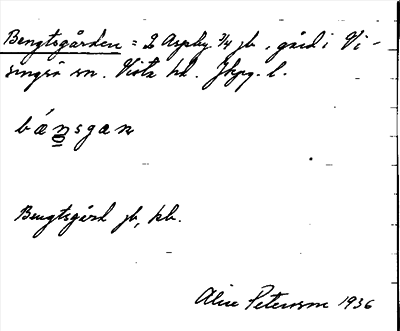 Bengtsgården = 2 Aspby 3/4 jb, gård i Vi-
singsö sn. Vista hd. Jkpg. l.
bánsgan
Bengtsgård jb, kb.
Alice Petersson 1936